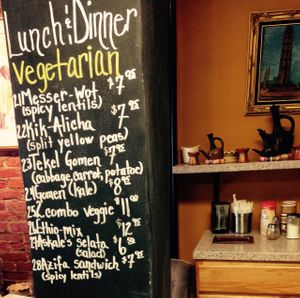 Lunch & Dinner
Vegetarian
21 Messer-Wot $7.95
(spicy lentils)
22 Kik-Alicha $7.95
(split yellow peas)
23 Tekel Gomen $7
(cabbage, carrot, potatoe)
24 Gomen (Kale) $8.95
25 Combo veggie $11.00
26 Ethio-mix $12.95
27 Mokale's Selata $6.50
(salad)
28 Azifa sandwich $7.95
(spicy lentils)